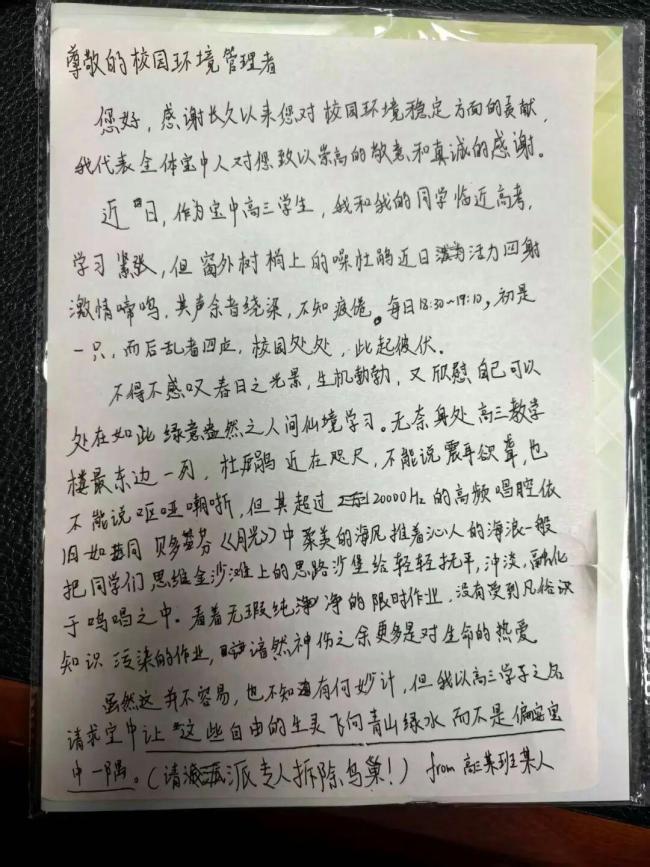 尊敬的校园环境管理者
您好，感谢长久以来您对校园环境稳定方面的贡献，
我代表全体宝中人对您致以崇高的敬意和真诚的感谢。
近日，作为宝中高三学生，我和我的同学临近高考，
学习紧张，但窗外树梢上的噪杜鹃近日活力四射
激情啼鸣，其声余音绕梁，不知疲倦。每日18:30~19:10，初是
一只，而后乱者四应，校园处处，此起彼伏。
不得不感叹春日之光景，生机勃勃，又欣慰自己可以
处在如此绿意盎然之人间仙境学习。无奈身处高三教学
楼最东边一列，杜鹃近在咫尺，不能说震耳欲聋，也
不能说呕哑嘲哳，但其超过20000Hz的高频唱腔依
旧如同贝多芬《月光》中柔美的海风推着沁人的海浪一般
把同学们思维金沙滩上的思路沙堡给轻轻抚平，冲淡，融化
于鸣唱之中。看着无瑕纯净的限时作业，没有受到凡俗
知识污染的作业，黯然神伤之余更多是对生命的热爱
虽然这并不容易，也不知有何妙计，但我以高三学子之名
请求宝中让这些自由的生灵飞向青山绿水而不是偏安宝
中一隅。（请派专人拆除鸟巢！） from 高三某班某人